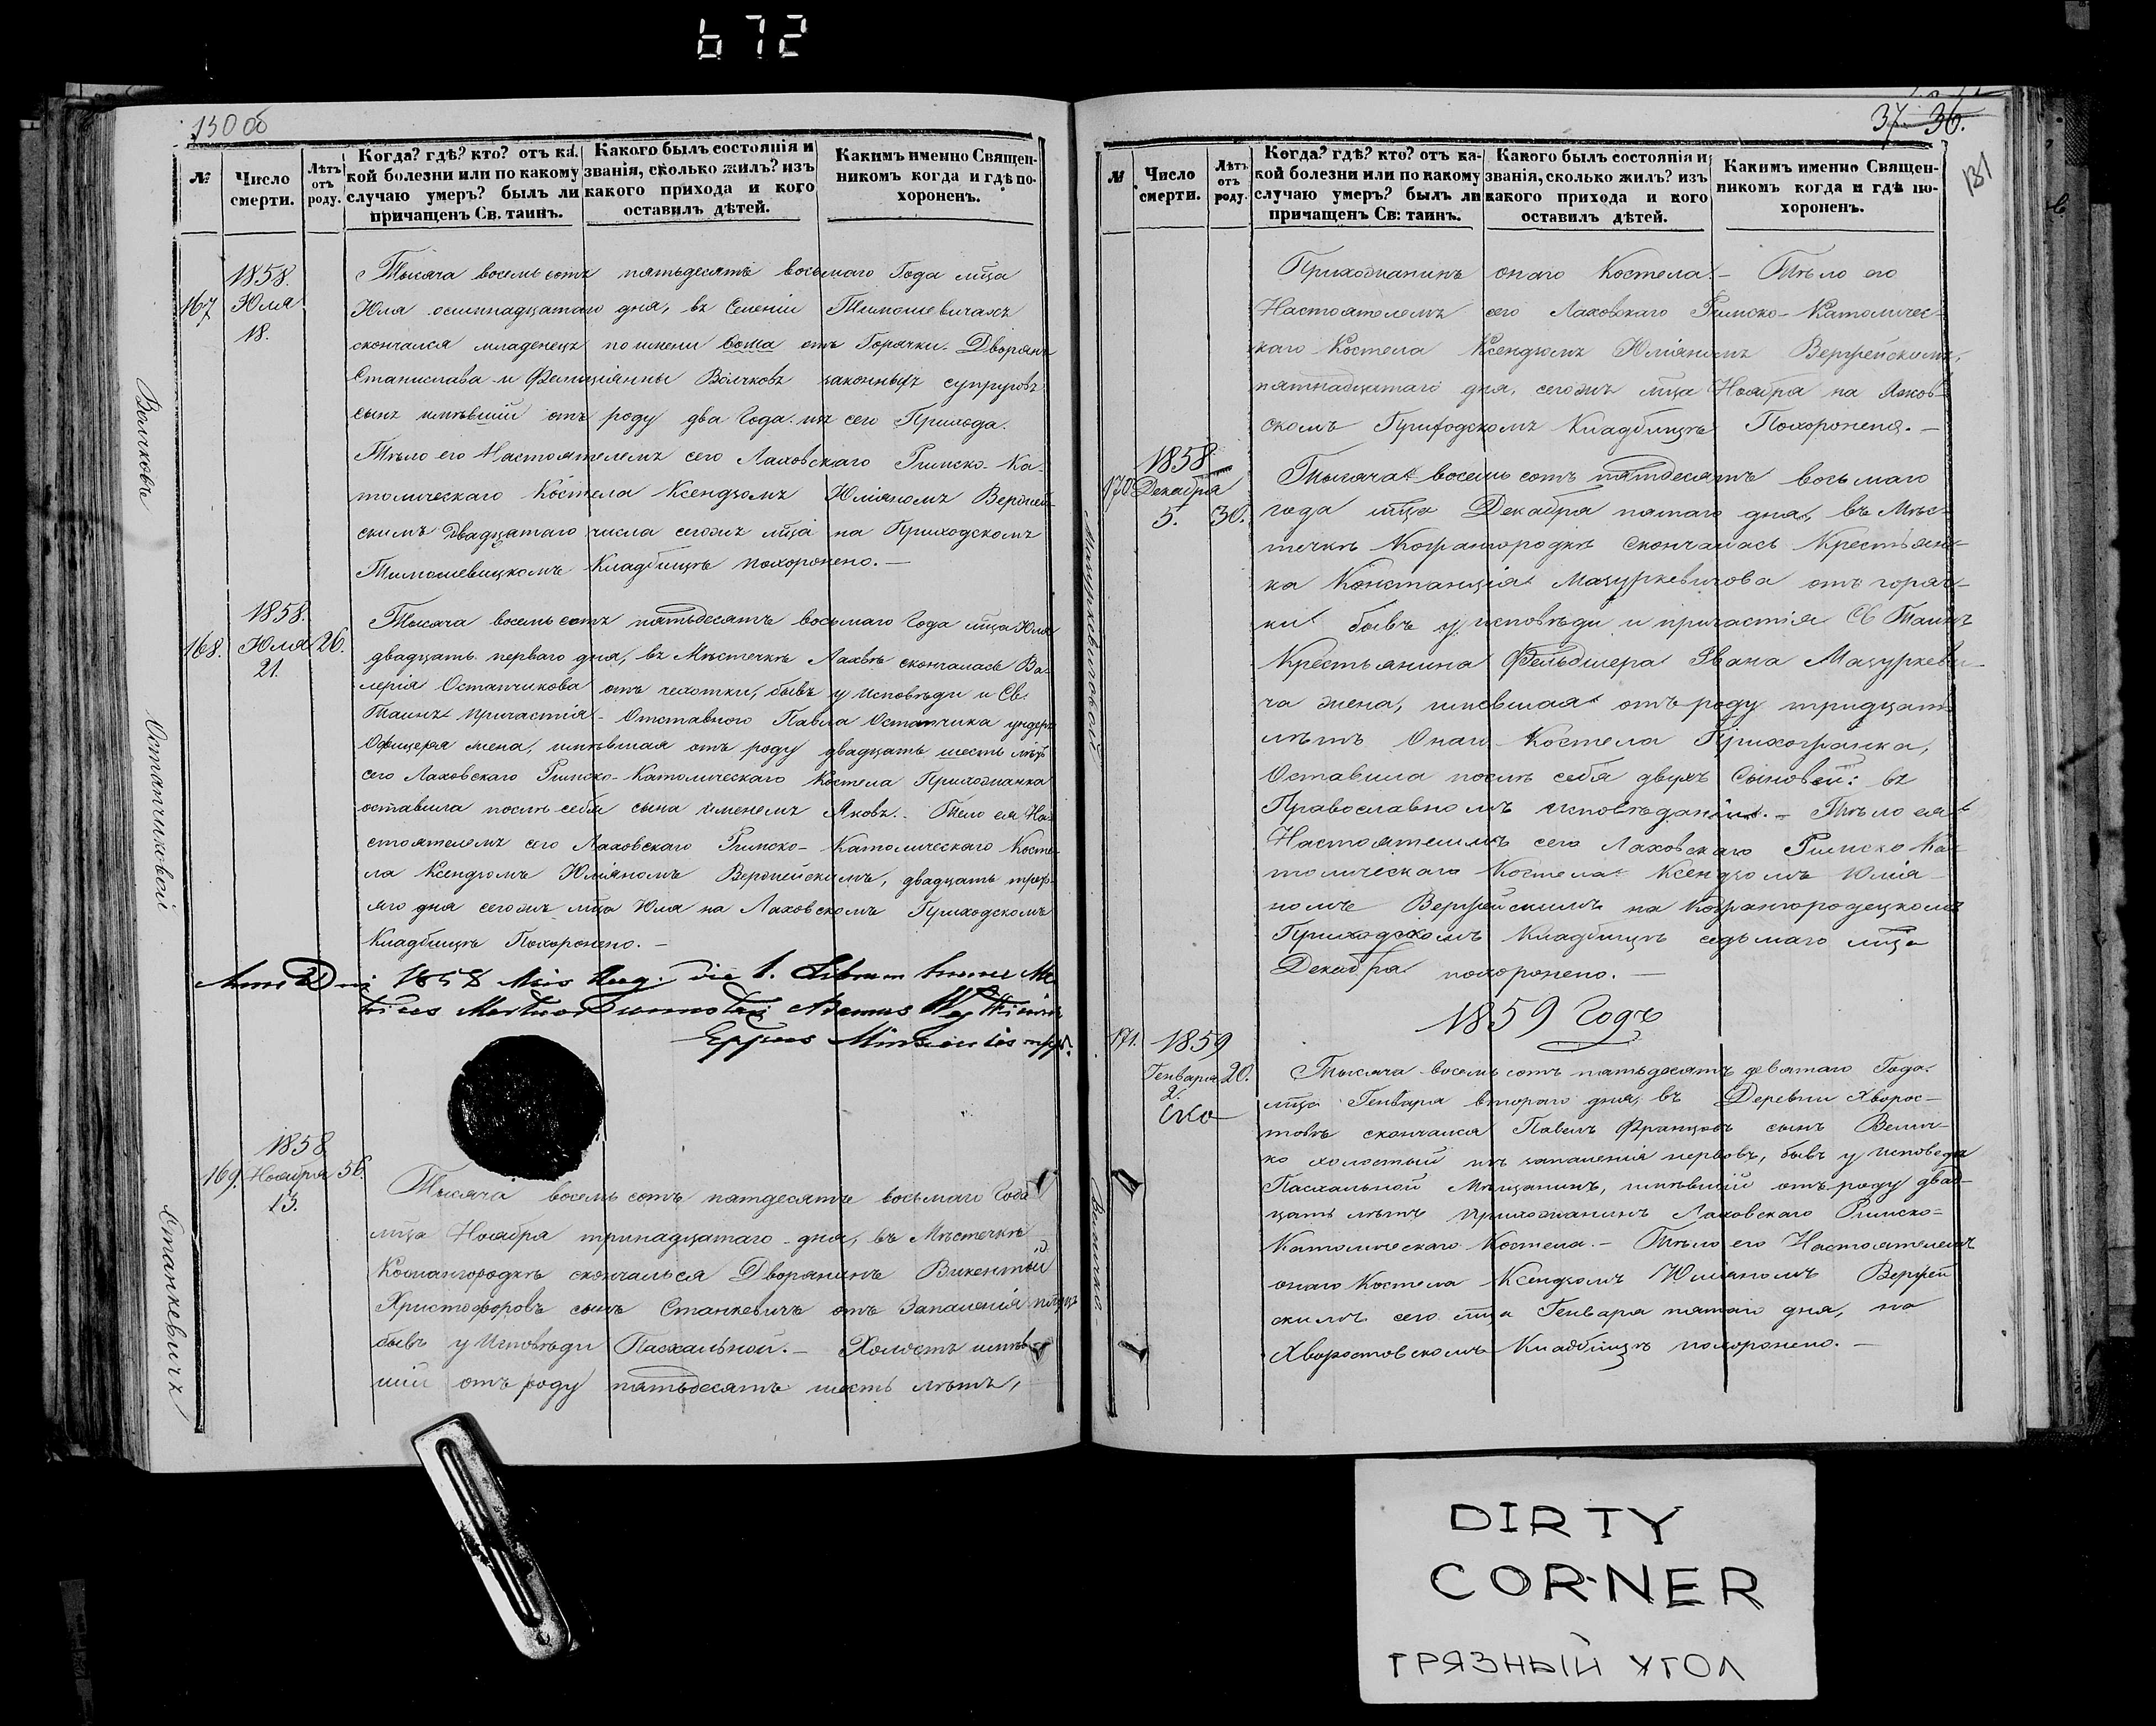 672
130 об
№
Число смерти.
Лѣтъ отъ роду.
Когда? гдѣ? кто? отъ ка-
кой болезни или по какому
случаю умеръ? былъ ли
причащенъ Св. таинъ.
Какого былъ состоянія и
званія, сколько жилъ? изъ
какого прихода и кого
оставилъ дѣтей.
Какимъ именно Священ-
никомъ когда и гдѣ по-
хороненъ.
Волчковъ
167
1858.
Юля
18.
Тысяча восемь сотъ пятьдесятъ восьмаго Года мца
Юля осмнадцатаго дня, въ Селеніи Тимошевичахъ
скончался младенецъ по имени отъ Горячки. Дворянъ
Станислава и Фелиціянны Волчковъ законныхъ супруговъ
сынъ имѣвшій отъ роду два Года. изъ сего Прихода.
Тѣло его Настоятелемъ сего Лаховскаго Римско-Ка-
толическаго Костела Ксендзомъ Юліяномъ Верпей-
скимъ Двадцатаго числа сегожъ мца на Приходскомъ
Тимошевицкомъ Кладбищѣ похоронено. —
Останчиковой
168.
1858.
Юля
21.
26.
Тысяча восемь сотъ пятьдесятъ восьмаго Года мца Юля
двадцать перваго дня, въ Мѣстечкѣ Лахвѣ скончалась Ва-
лерія Останчикова отъ чахотки, бывъ у исповѣди и Св.
Таинъ причастія. Отставного Павла Останчика ундеръ
Офицера жена, имѣвшая отъ роду двадцать шесть лѣтъ
сего Лаховскаго Римско-Католическаго Костела Прихожанка
оставила послѣ себя сына именемъ Яковъ. Тело ея На-
стоятелемъ сего Лаховскаго Римско-Католическаго Косте-
ла Ксендзомъ Юліяномъ Верпейскимъ, двадцать треть-
яго дня сегожъ мца Юля на Лаховскомъ Приходскомъ
Кладбищѣ Похоронено. —
Anno Dni 1858 Mis Aug. die 1. Librum hunc Me-
trices Mortuor Adamus
Eppus Minscensis mpp.
Станкевичъ
169.
1858
Ноября
13.
56.
Тысяча восемь сотъ пятдесятъ восьмаго Года
мца Ноября тринадцатаго дня, въ Мѣстечкѣ
Кожангородкѣ скончалься Дворянинъ Викентій
Христофоровъ сынъ Станкевичъ отъ Запаленія
бывъ у Исповѣди Пасхальной. — Холостъ имѣв-
шій отъ роду пятьдесятъ шесть лѣтъ,
37 36.
131
№
Число смерти.
Лѣтъ отъ роду.
Когда? гдѣ? кто? отъ ка-
кой болезни или по какому
случаю умеръ? былъ ли
причащенъ Св: таинъ.
Какого былъ состоянія и
званія, сколько жилъ? изъ
какого прихода и кого
оставилъ дѣтей.
Какимъ именно Священ-
никомъ когда и гдѣ по-
хороненъ.
Прихожанинъ онаго Костела. — Тѣло его
Настоятелемъ сего Лаховскаго Римско-Католичес-
каго Костела Ксендзомъ Юліяномъ Верпейскомъ,
пятнадцатаго дня, сегожъ мца Ноября на
скомъ Приходскомъ Кладбищѣ Похоронена. —
Мацуркевичовой
170
1858
Декабря
5.
30.
Тысяча восемь сотъ пятдесятъ восьмаго
года мца Декабря пятаго дня, въ Мѣс-
течкѣ Кожангородкѣ скончалась Крестьян-
ка Констанція Мацуркевичова отъ горяч-
ки бывъ у исповѣди и причастія Св Таинъ
Крестьянина Фельдшера Ивана Мацуркеви-
ча жена, имѣвшая отъ роду тридцать
лѣтъ Онаго Костела Прихожанка,
Оставила послѣ себя двухъ Сыновей: въ
Православномъ исповѣданіи. — Тѣло ея
Настоятелемъ сего Лаховскаго Римско Ка-
толическаго Костела Ксендзомъ Юлія-
номъ Верпейскимъ на Кожангородецкомъ
Приходскомъ Кладбищѣ седьмаго мца
Декабря похоронено. —
1859 Годъ
Величко
171.
1859
Генваря
2.
20.
Тысяча восемь сотъ пятьдесятъ девятаго Года
мца Генваря втораго дня, въ Деревни Хворос-
товѣ скончался Павелъ Францовъ сынъ Велич-
ко холостый изъ запаленія нервовъ, бывъ у исповеди
Пасхальной Мѣщанинъ, имѣвшій отъ роду двад-
цать лѣтъ прихожанинъ Лаховскаго Римско-
Католическаго Костела. — Тѣло его Настоятелемъ
онаго Костела Ксендзомъ Юліяномъ Верпей-
скимъ сего мца Генваря пятаго дня, на
Хворостовскомъ Кладбищѣ похоронено. —
DIRTY
CORNER
ГРЯЗНЫЙ УГОЛ